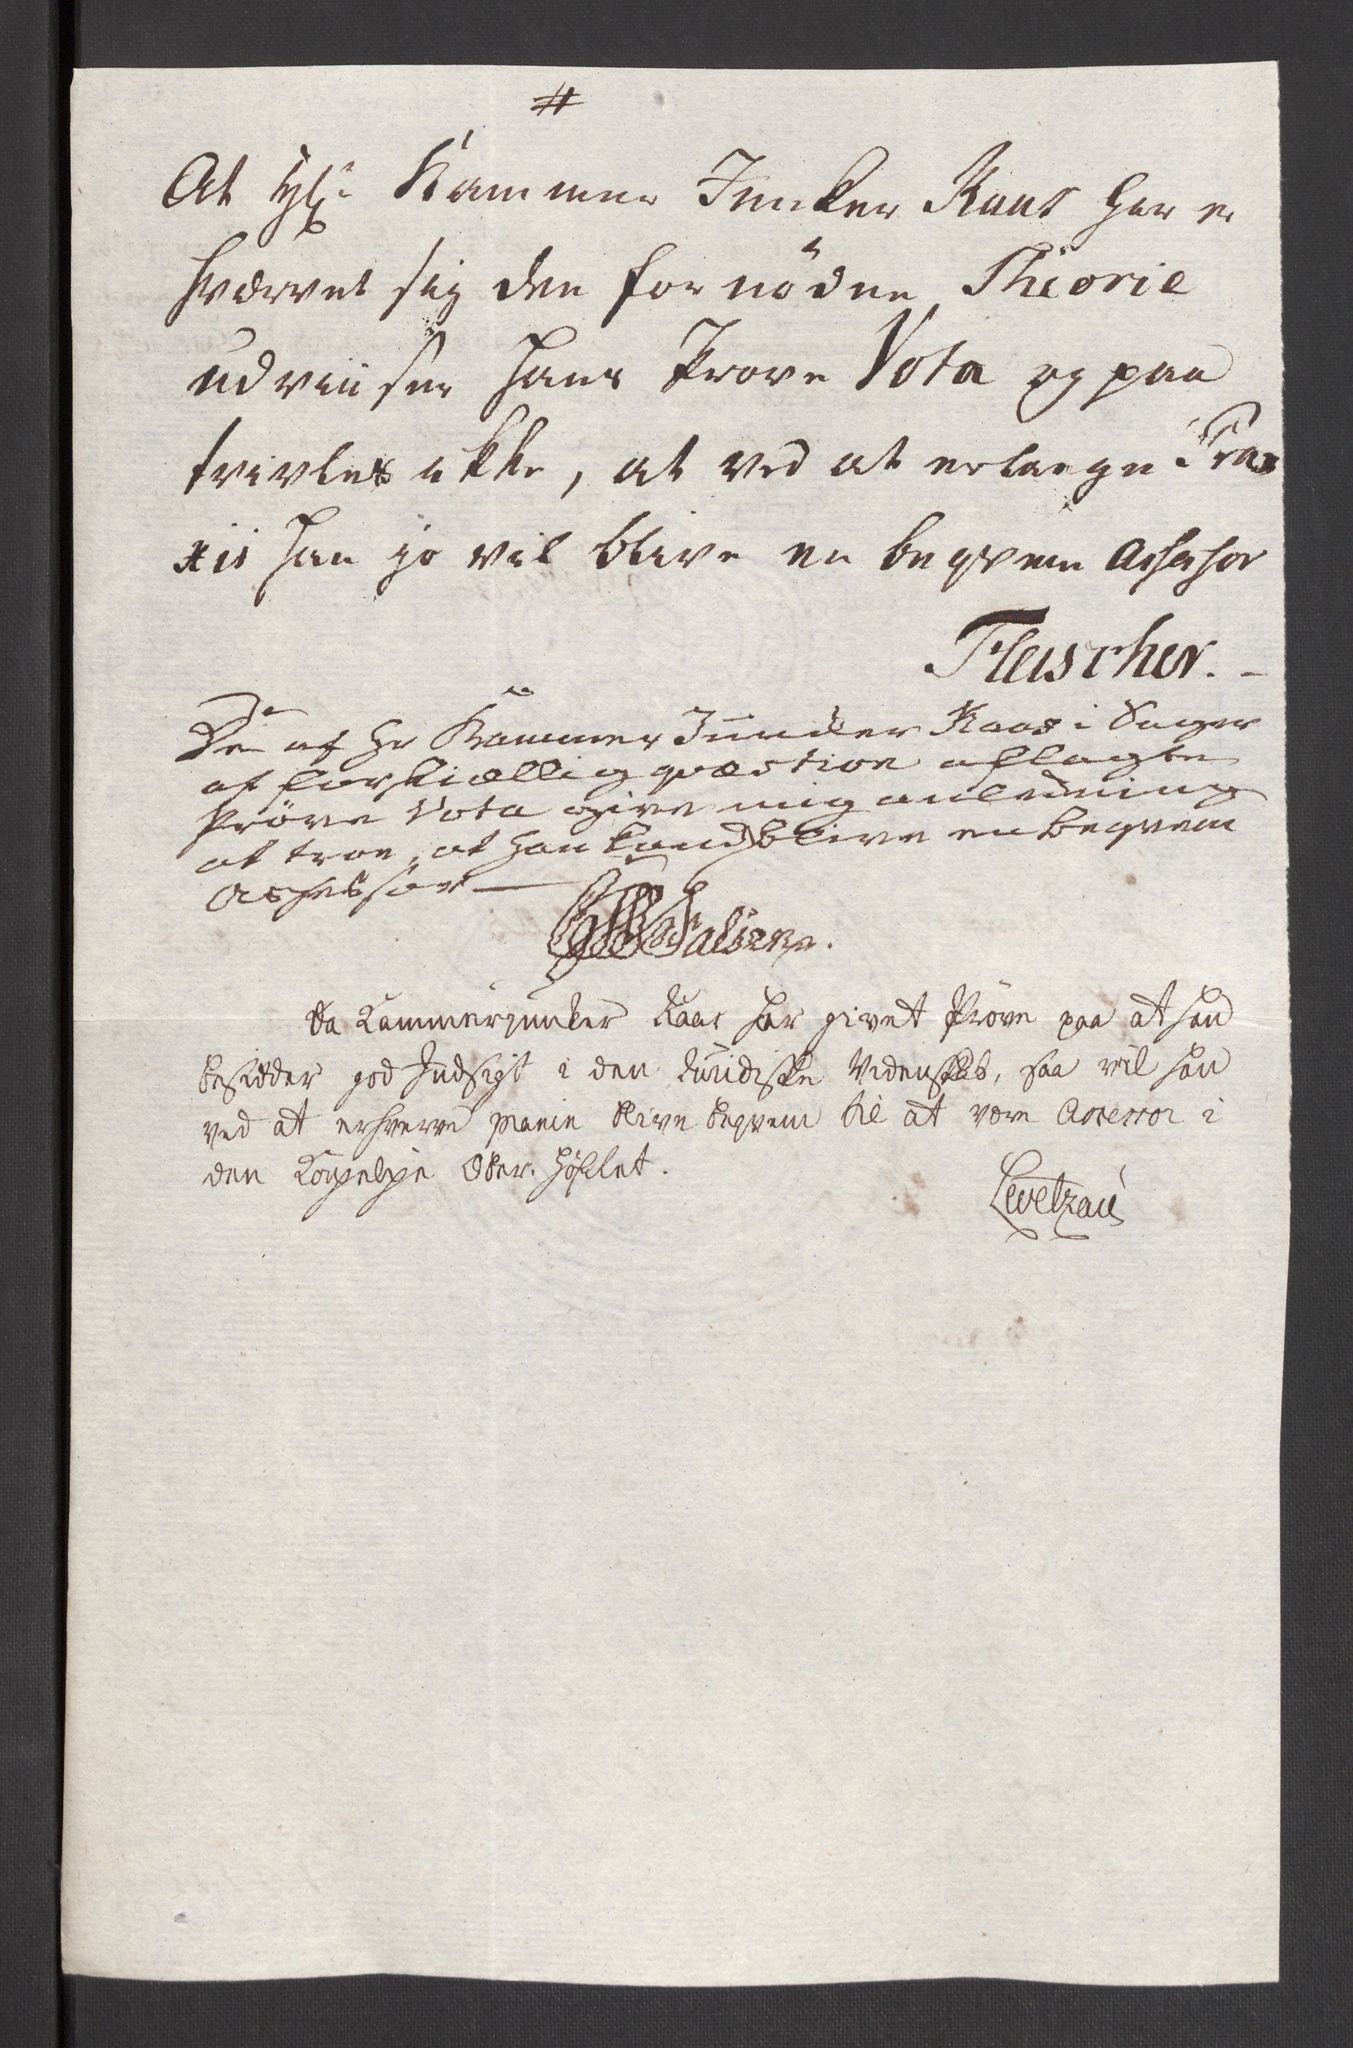 #
At Hr. Kammer Juncker Kaas har er
hværvet sig den fornödne Theorie
udviiser hans Prove Vota og paa
tvivles ikke, at ved at erlange Pra
xis han jo vil blive en beqvem Assessor
Fleischer.
De af Hr Kammer Juncker Kaas i Sager
af forskiællig qvæstion aflagte
Pröve Vota give mig anledning
at troe, at han kand blive en beqvem
Assessor
Falsen.
Da Kammerjunker Kaas har givet Pröve paa at han
besidder god Indsigt i den Juridiske Videnskab, saa vil han
ved at erhverve praxin blive beqvem til at være Assessor i
den Kongelige Ober-Hofret.
Levetzau